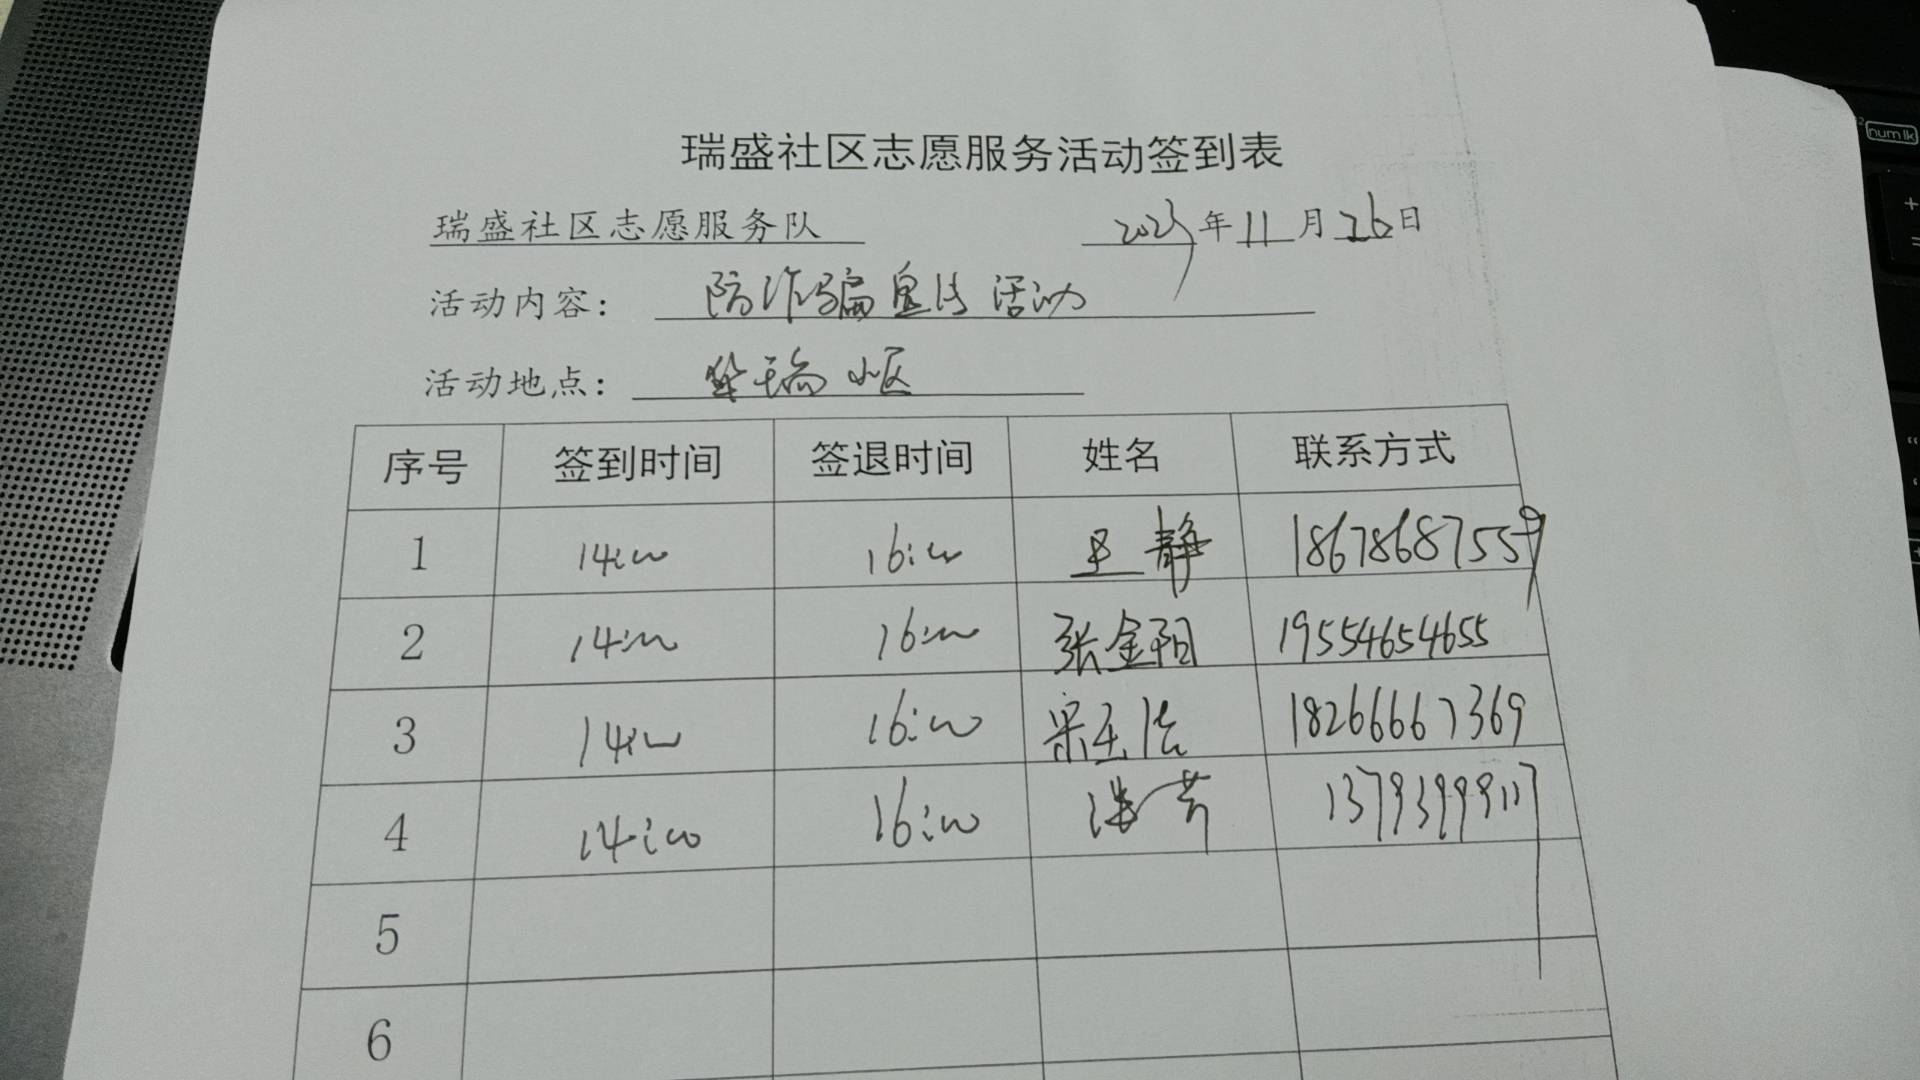 瑞盛社区志愿服务活动签到表
瑞盛社区志愿服务队 2023年11月26日
活动内容： 防诈骗宣传活动
活动地点： 华瑞小区
序号 签到时间 签退时间 姓名 联系方式
1 14:00 16:00 王静 18678687559
2 14:00 16:00 张金阳 19554654655
3 14:00 16:00 18266667369
4 14:00 16:00 13793999117
5
6
num lk